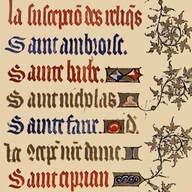 la susceptiō des reliq̄s
Saint ambroise.
Sainte barbe.
Saint nicholas
Sainte fare d.
la ɔcep̄. nr̄e dame.
Saint ciprian